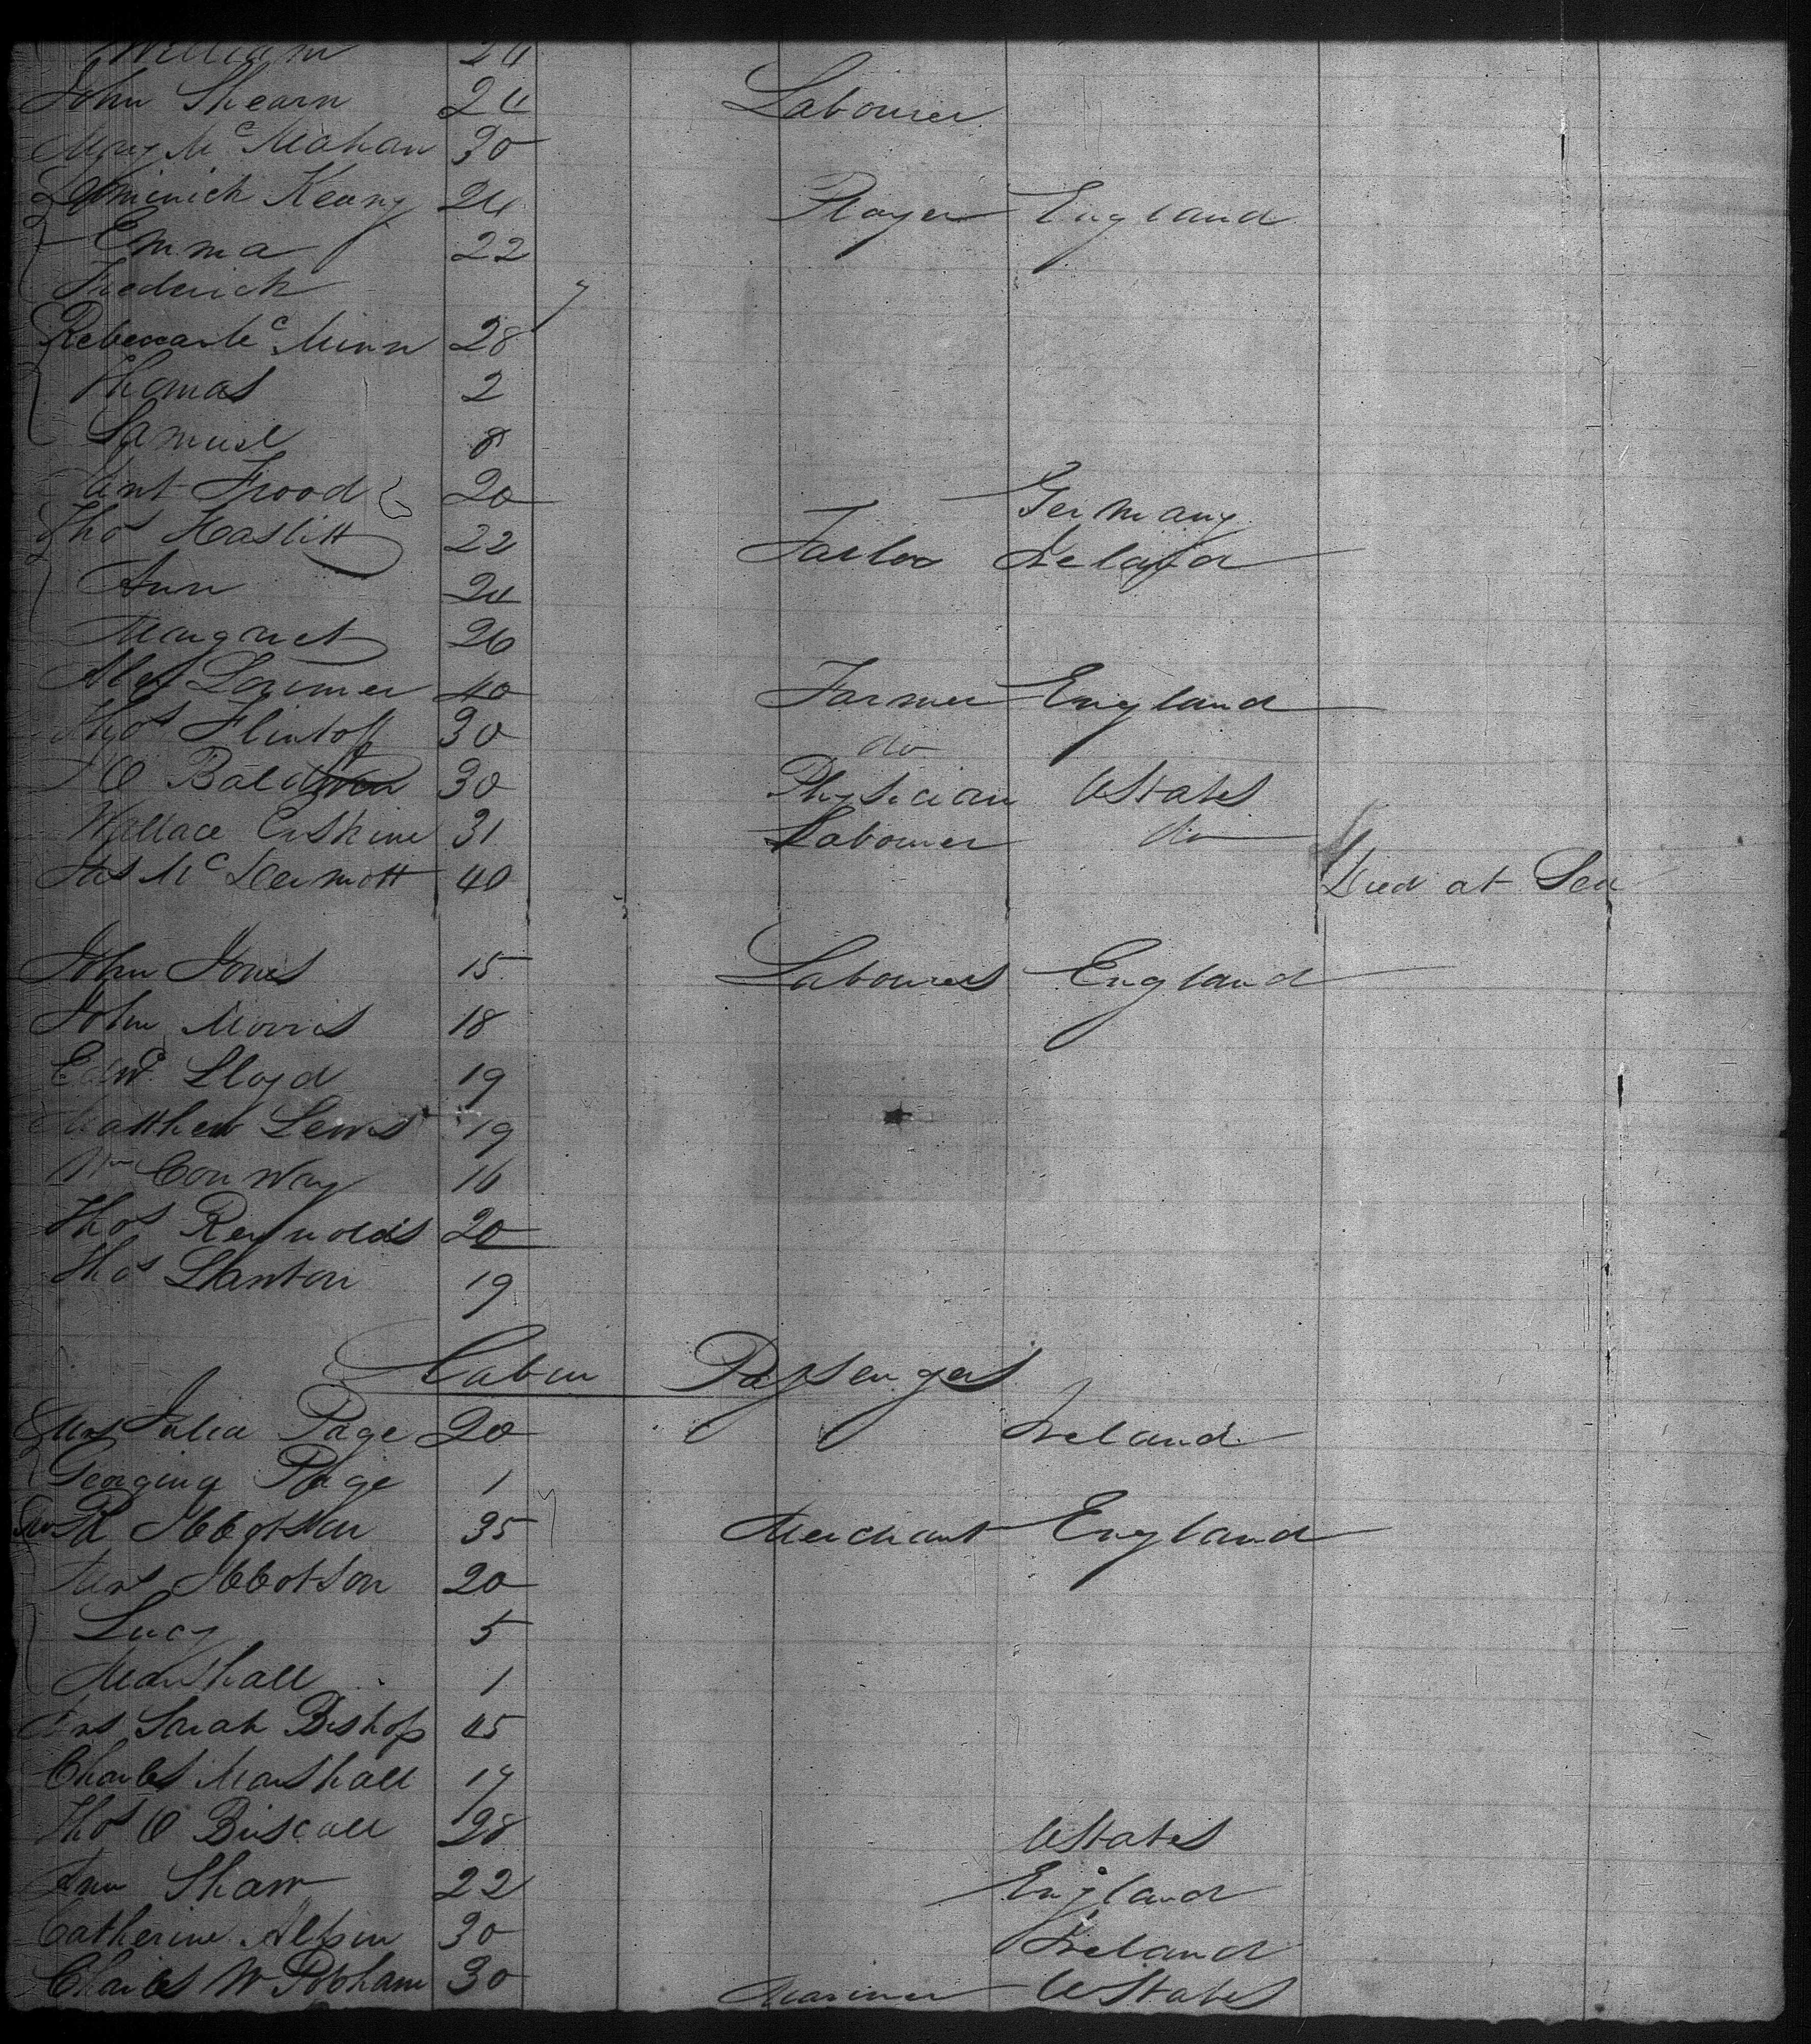 William 24
John Shearn 24 Labourer
Mary McMahan 30
Dominick Keary 24 Player England
Emma 22
Frederick
Rebecca Mc Minn 28
Thomas 2
Samuel 8
Ant Frood 20 Germany
Thos Haslitt 22 Ireland
Ann 24
Margret 26
Alex Lorimer 40 Farmer England
Thos Flintoff 30 do
O Baldwin 30 Physician UStates
Wallace Erskine 31 Labourer do
Jas McDermott 40 Died at Sea
John Jones 15 Labourers England
John Morris 18
Edwd Lloyd 19
Matthew Lewis 19
Wm Conway 16
Thos Reynolds 20
Thos Stanton 19
Cabin Passengers
Mrs Julia Page 20 Ireland
Georgina Page 1
R Ibbotson 35 Merchant England
Mrs Ibbotson 20
Lucy 5
Marshall 1
Mrs Sarah Bishop 45
Charles Marshall 17
Thos O Briscall 28 UStates
Ann Shaw 22 England
Catherine Alpin 30 Ireland
Charles W Popham 30 Mariner UStates